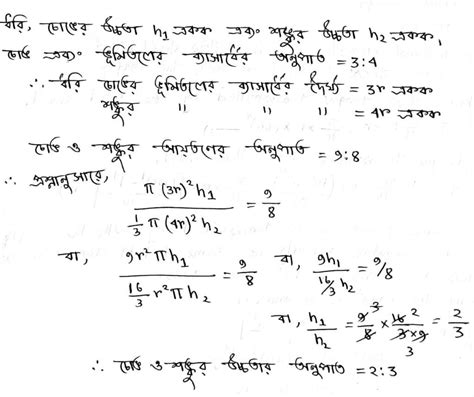 ধরি, চোঙের উচ্চতা h₁ একক এবং শঙ্কুর উচ্চতা h₂ একক,
চোঙ এবং ভূমিতলের ব্যাসার্ধের অনুপাত = 3:4
∴ ধরি চোঙের ভূমিতলের ব্যাসার্ধের দৈর্ঘ্য = 3r একক
শঙ্কুর " " " = 4r একক
চোঙ ও শঙ্কুর আয়তনের অনুপাত = 9:8
∴ প্রশ্নানুসারে,
π(3r)²h₁ / (1/3 π(4r)²h₂) = 9/8
বা, 9r²πh₁ / (16/3 r²πh₂) = 9/8 বা, 9h₁ / (16/3 h₂) = 9/8
বা, h₁/h₂ = 9/8 × 16/(3×9) = 2/3
∴ চোঙ ও শঙ্কুর উচ্চতার অনুপাত = 2:3